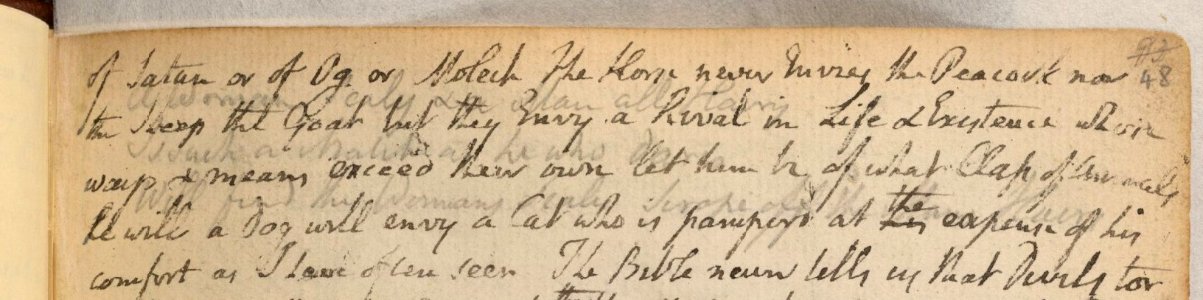 93
48
of Satan or of Og or Molech The Horse never Envies the Peacock nor
the Sheep the Goat but they Envy a Rival in Life & Existence whose
ways & means exceed their own let him be of what Class of Animals
he will a Dog will envy a Cat who is pamperd at the expense of his
comfort as I have often seen The Bible never tells us that Devils tor